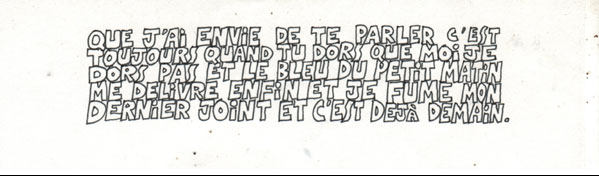 QUE J'Ai ENViE DE TE PARLER C'EST
TOUJOURS QUAND TU DORS QUE MOi JE
DORS PAS ET LE BLEU DU PETiT MATiN
ME DELiVRE ENFiN ET JE FUME MON
DERNiER JOiNT ET C'EST DEJÀ DEMAiN.